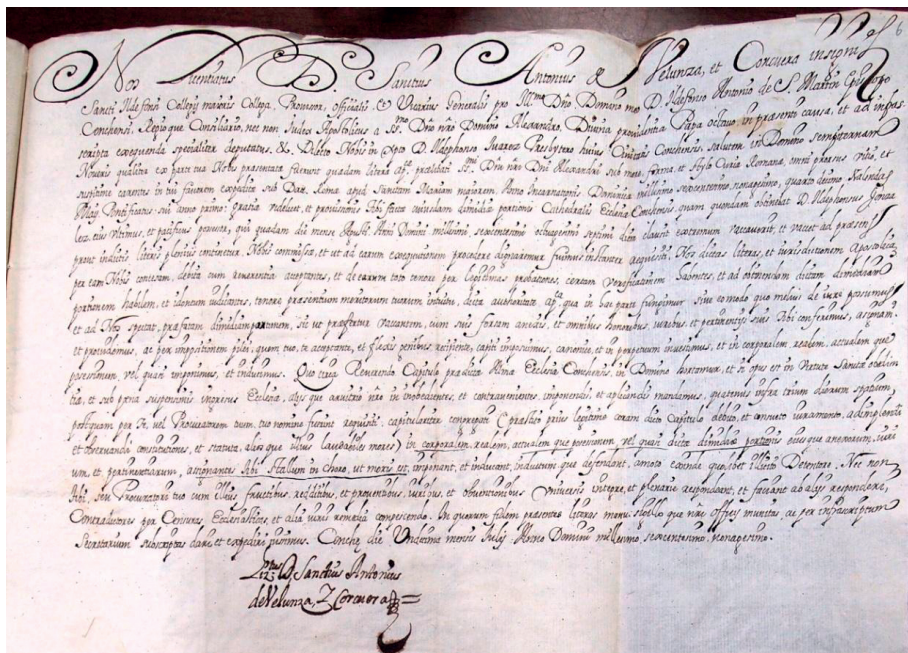 Nos Licentiatus D. Sanctius Antonius de Velunza, et Corcuera insignis
Sancti Ildefonsi Collegij maioris Collega, Provisor, officialis & Vicarius Generalis pro Illmo Dño Domino meo D. Ildefonso Antonio de S. Martin Episcopo
Conchensi, Regioque Consiliario, nec non Iudex Apostolicus a SSmo Dño nrõ Domino Alexandro, Divina providentia Papa octavo, in presenti causa, et ad infras-
scripta exequenda specialiter deputatus, &. Dilecto Nobis in Xpto D. Ildephonso Suarez Presbytero huius Civitatis Conchensis salutem in Domino sempiternam
Noveris qualiter ex parte tua Nobis presentatæ fuerunt quædam literæ apcæ. prælibati SSmi Dñi nrĩ Dñi Alexandri sub more, forma, et stylo Curiæ Romanæ, omni prorsus vitio, et
suspitione carentes in tui favorem expeditæ sub Dat. Romæ apud Sanctam Mariam maiorem, Anno Incarnationis Dominicæ millesimo sexcentesimo, nonagesimo, quarto decimo Kalendas
Maij Pontificatus sui anno primo: gratiæ videlicet, et provisionis tibi factæ cuiusdam dimidiæ portionis Cathedralis Ecclesiæ Conchensis, quam quondam obtinebat D. Ildephonsus
eius ultimus, et pacificus possessor, qui quadam die mense Augusti Anni Domini millesimi, sexcentesimi octuagesimi septimi diem clausit extremum vacavurit, et vacet ad præsens
prout in dictis literis plenius continetur. Nobis commissæ, et ut ad earum exequutionem procedere dignaremur fuimus instanter requisiti. Nos dictas literas, et iurisdictionem Apostolicam
per eam Nobis contesam, debita cum reverentia acceptantes, et de earum toto tenore per legitimas probationes, certam verificationem habentes, et ad obtinendam dictam dimidiam
portionem habilem, et idoneum iudicantes, tenore præsentium meritorum tuorum intuitu, dicta authoritate apca. qua in hac parte fungimur sive eo modo quo melius de iure possumus
et ad Nos spectat, præfatam dimidiam portionem, sic ut præfertur vacantem, cum suis forsan annexis, et omnibus honoribus, iuribus, et pertinentijs suis tibi conferimus, assignam.
et providemus, ac per impositionem pilei, quem tuo, te acceptante, et flexis genibus recipiente, capiti imposuimus, canonice, et in perpetuum investimus, et in corporalem realem, actualem que
possesionem, vel quasi imponimus, et inducimus. Quo circa Reverendo Capitulo prædictæ Almæ Ecclesiæ Conchensis, in Domino hortamur, et si opus est in virtute Sanctæ obedien
tiæ, et sub pæna suspensionis ingresus Ecclesiæ, alijs que arvitrio nrõ in inobedientes, et contravenientes, imponendis, et aplicandis mandamus, quatenus infra trium dierum spatium,
postquam per te, vel Procuratorem tuum, tuo nomine fuerint requisiti, capitulariter congregati (præstito prius legitimo coram dicto Capitulo debito, et consueto iuramento, adimplendi
et observandi constitutiones, et statuta, alios que illius laudabiles mores) in corporalem, realem, actualem que possesionem, vel quasi dictæ dimidiæ portionis eius que annexorum, iuri
um, et pertinentiarum, assignantes tibi stallum in choro, ut moris est, imponant, et inducant, inductum que defendant, amoto exinde quolibet illicito Detentore. Nec non
tibi, seu Procuratori tuo cum illius fructibus, redditibus, et proventibus, iuribus, et obventionibus vniversis integre, et plenarie respondeant, et faciant ab alijs responderi,
Contradictores per Censuras Ecclesiasticas, et alia iuris remedia compescendo. In quorum fidem presentes literas manu sigillo que nrõ officij munitas, ac per infrascriptum
Secretarium subscriptas dare et expediri iussimus. Conchæ die Undecima mensis Iulij Anno Domini millesimo, sexcentesimo, nonagesimo.
Ltus D. Sanctius Antonius
de Velunza, Z Corcuera